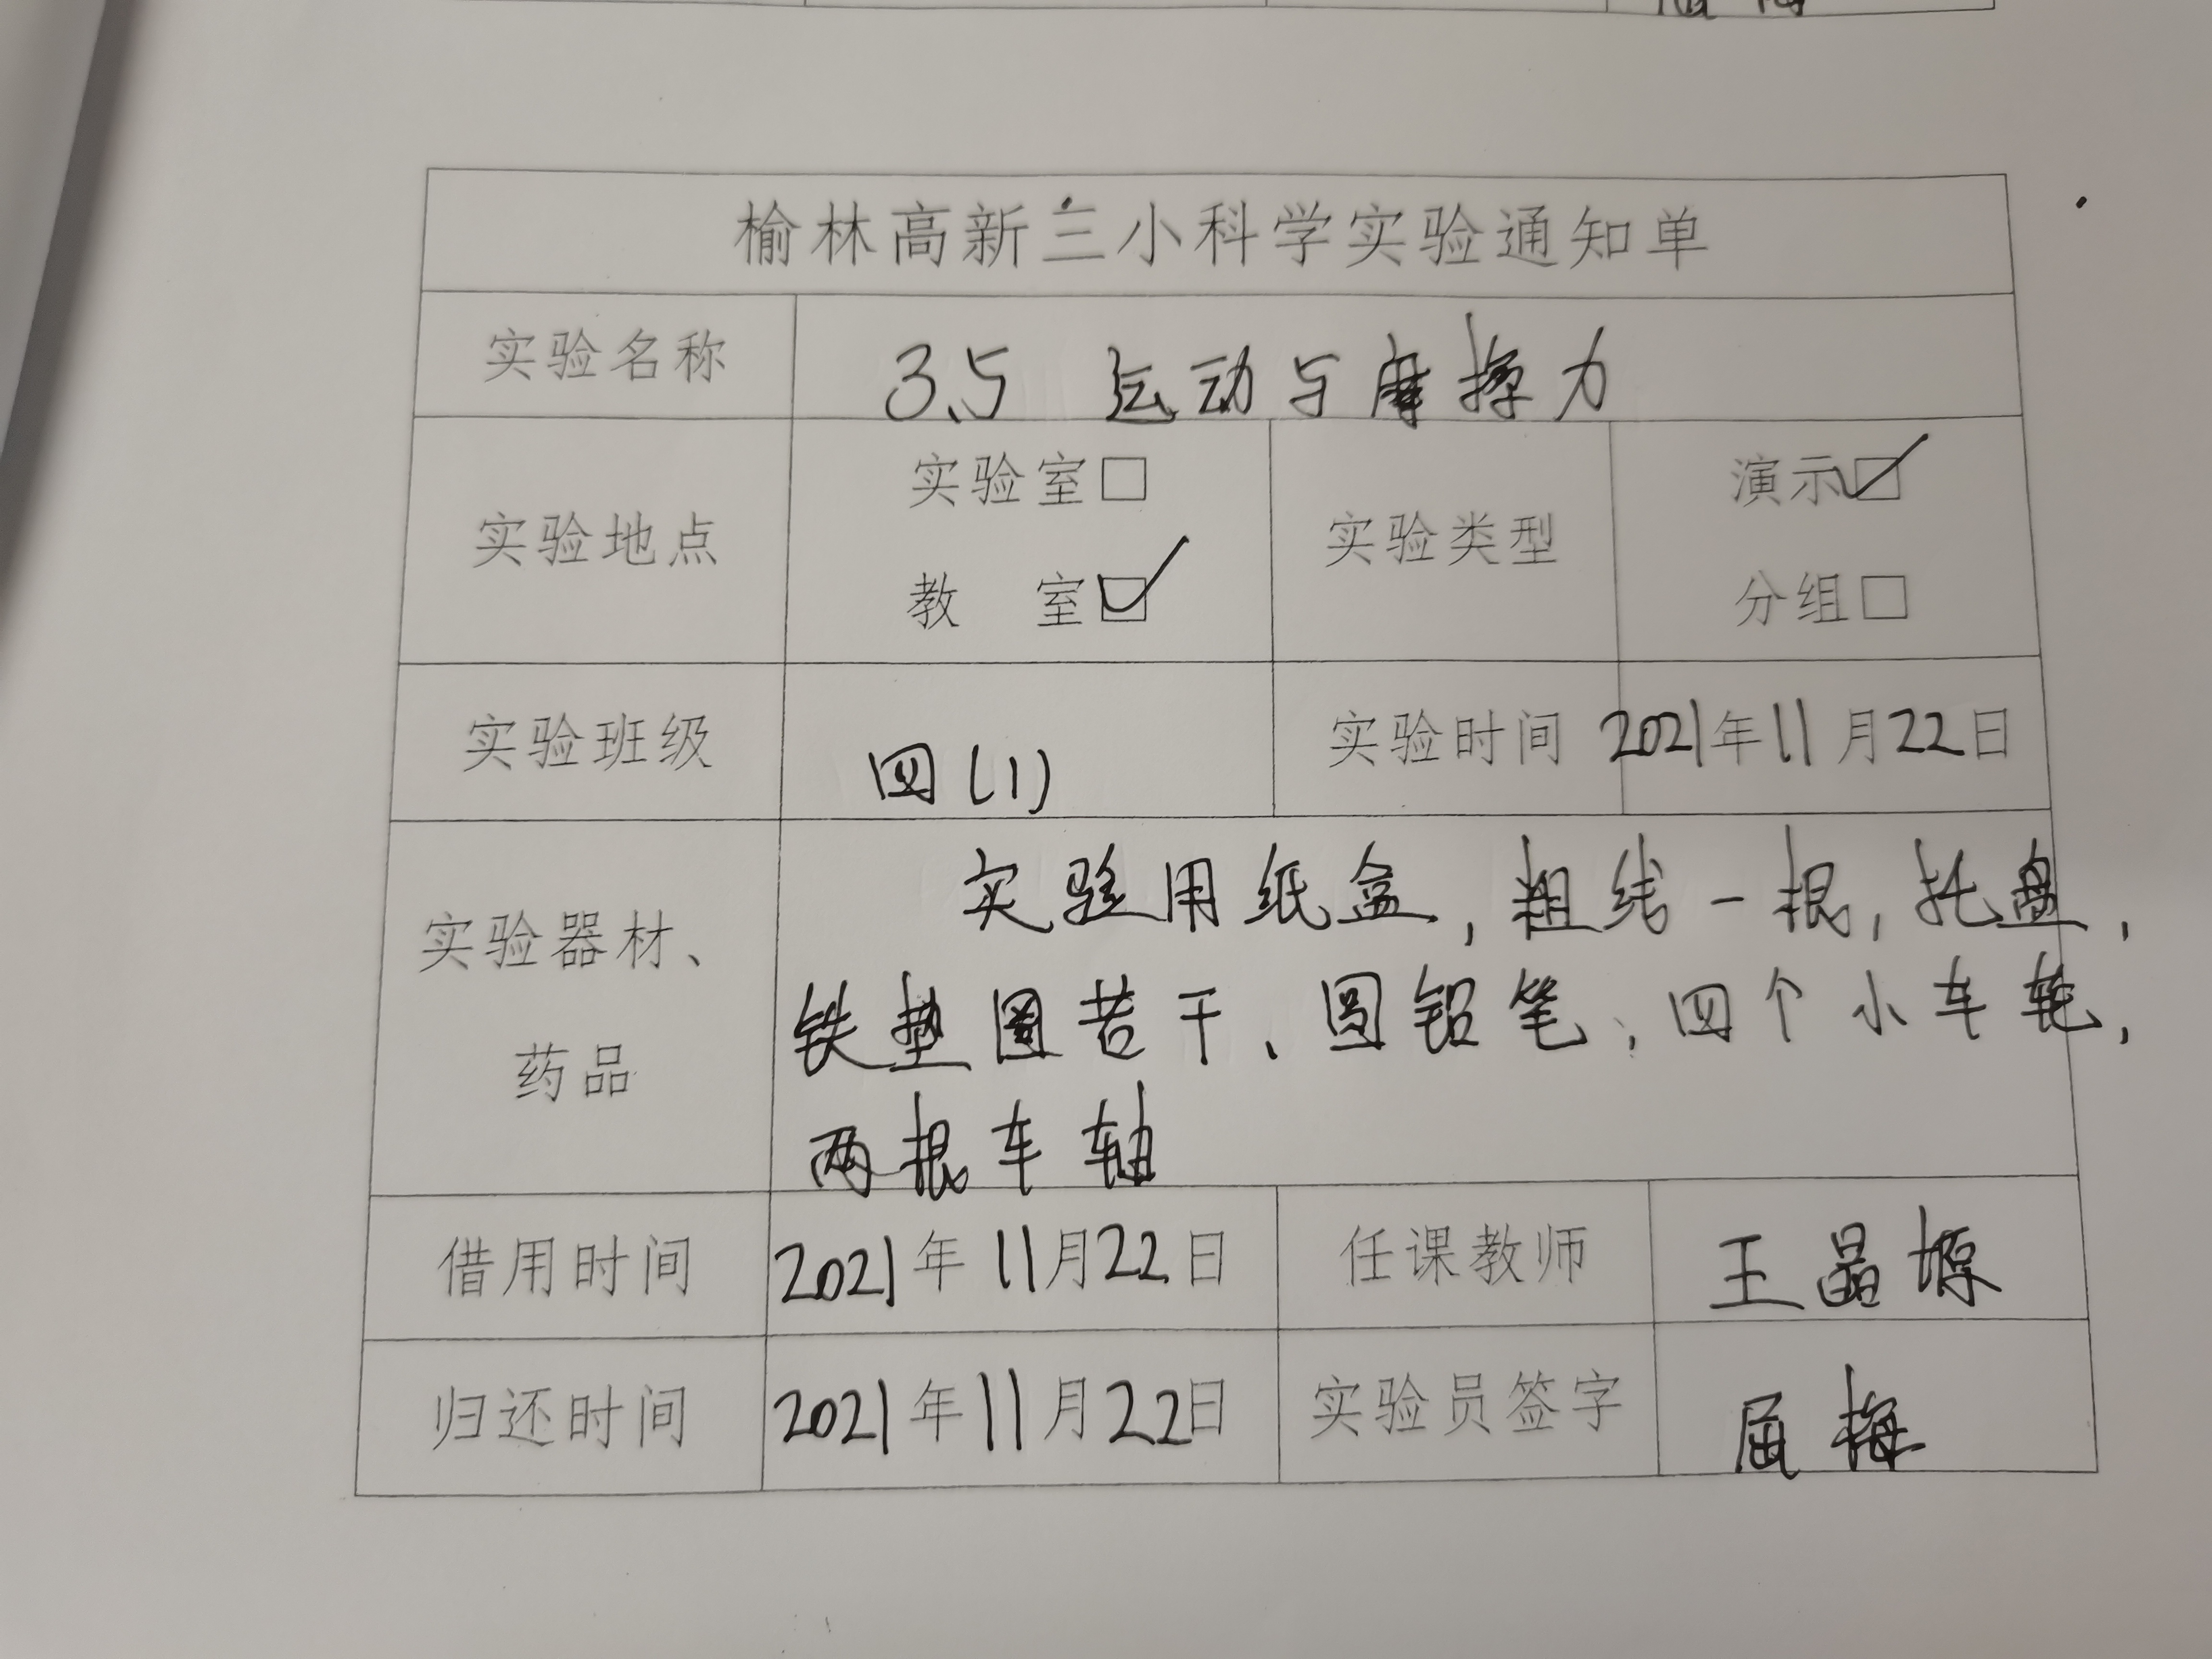 榆林高新三小科学实验通知单
实验名称 3.5 运动与摩擦力
实验地点 实验室□ 教 室☑ 实验类型 演示☑ 分组□
实验班级 四(1) 实验时间 2021年11月22日
实验器材、药品
实验用纸盒,粗线一根,托盘,
铁垫圈若干、圆铅笔、四个小车轮,
两根车轴
借用时间 2021年11月22日 任课教师 王晶塬
归还时间 2021年11月22日 实验员签字 屈梅